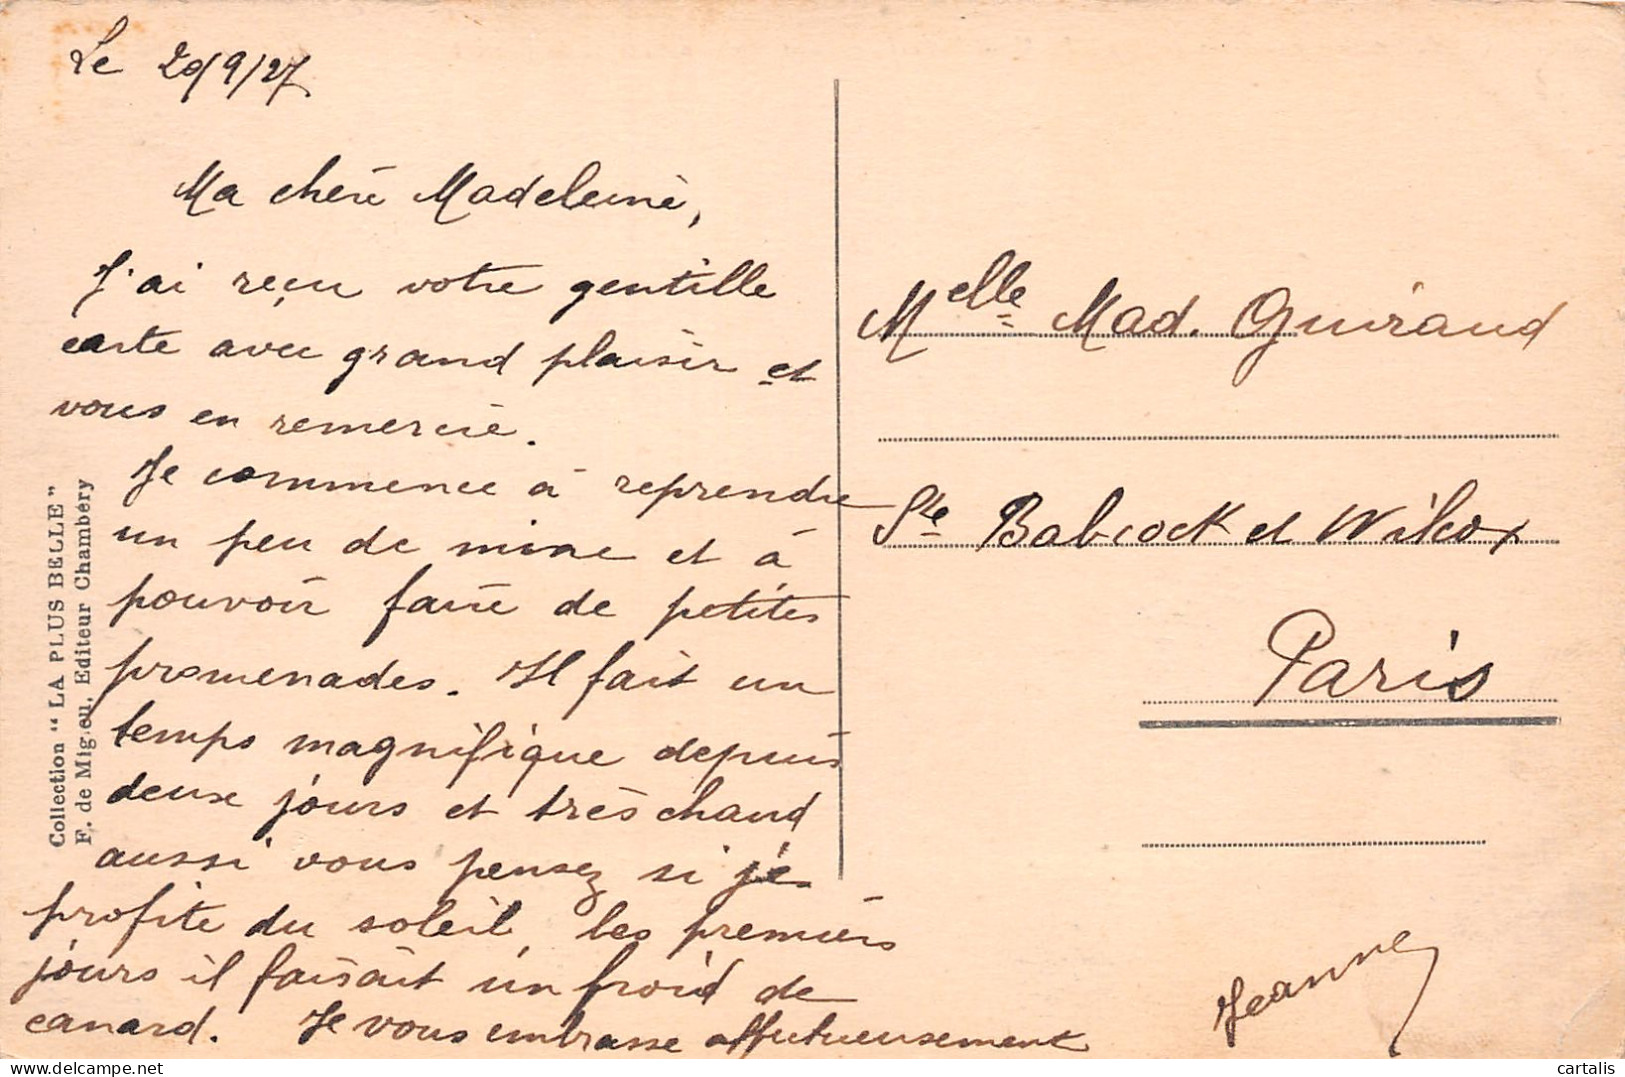 Le 20/9/27
Ma chère Madeleine,
J'ai reçu votre gentille
carte avec grand plaisir et
vous en remercie.
Je commence à reprendre
un peu de mine et à
pouvoir faire de petites
promenades. Il fait un
temps magnifique depuis
deux jours et très chaud
aussi vous pensez si je
profite du soleil, les premiers
jours il faisait un froid de
canard. Je vous embrasse affectueusement
Jeanne
Melle Mad. Guiraud
Sté Babcock et Wilcox
Paris
Collection "LA PLUS BELLE"
F. de Migieu, Editeur Chambéry
cartalis